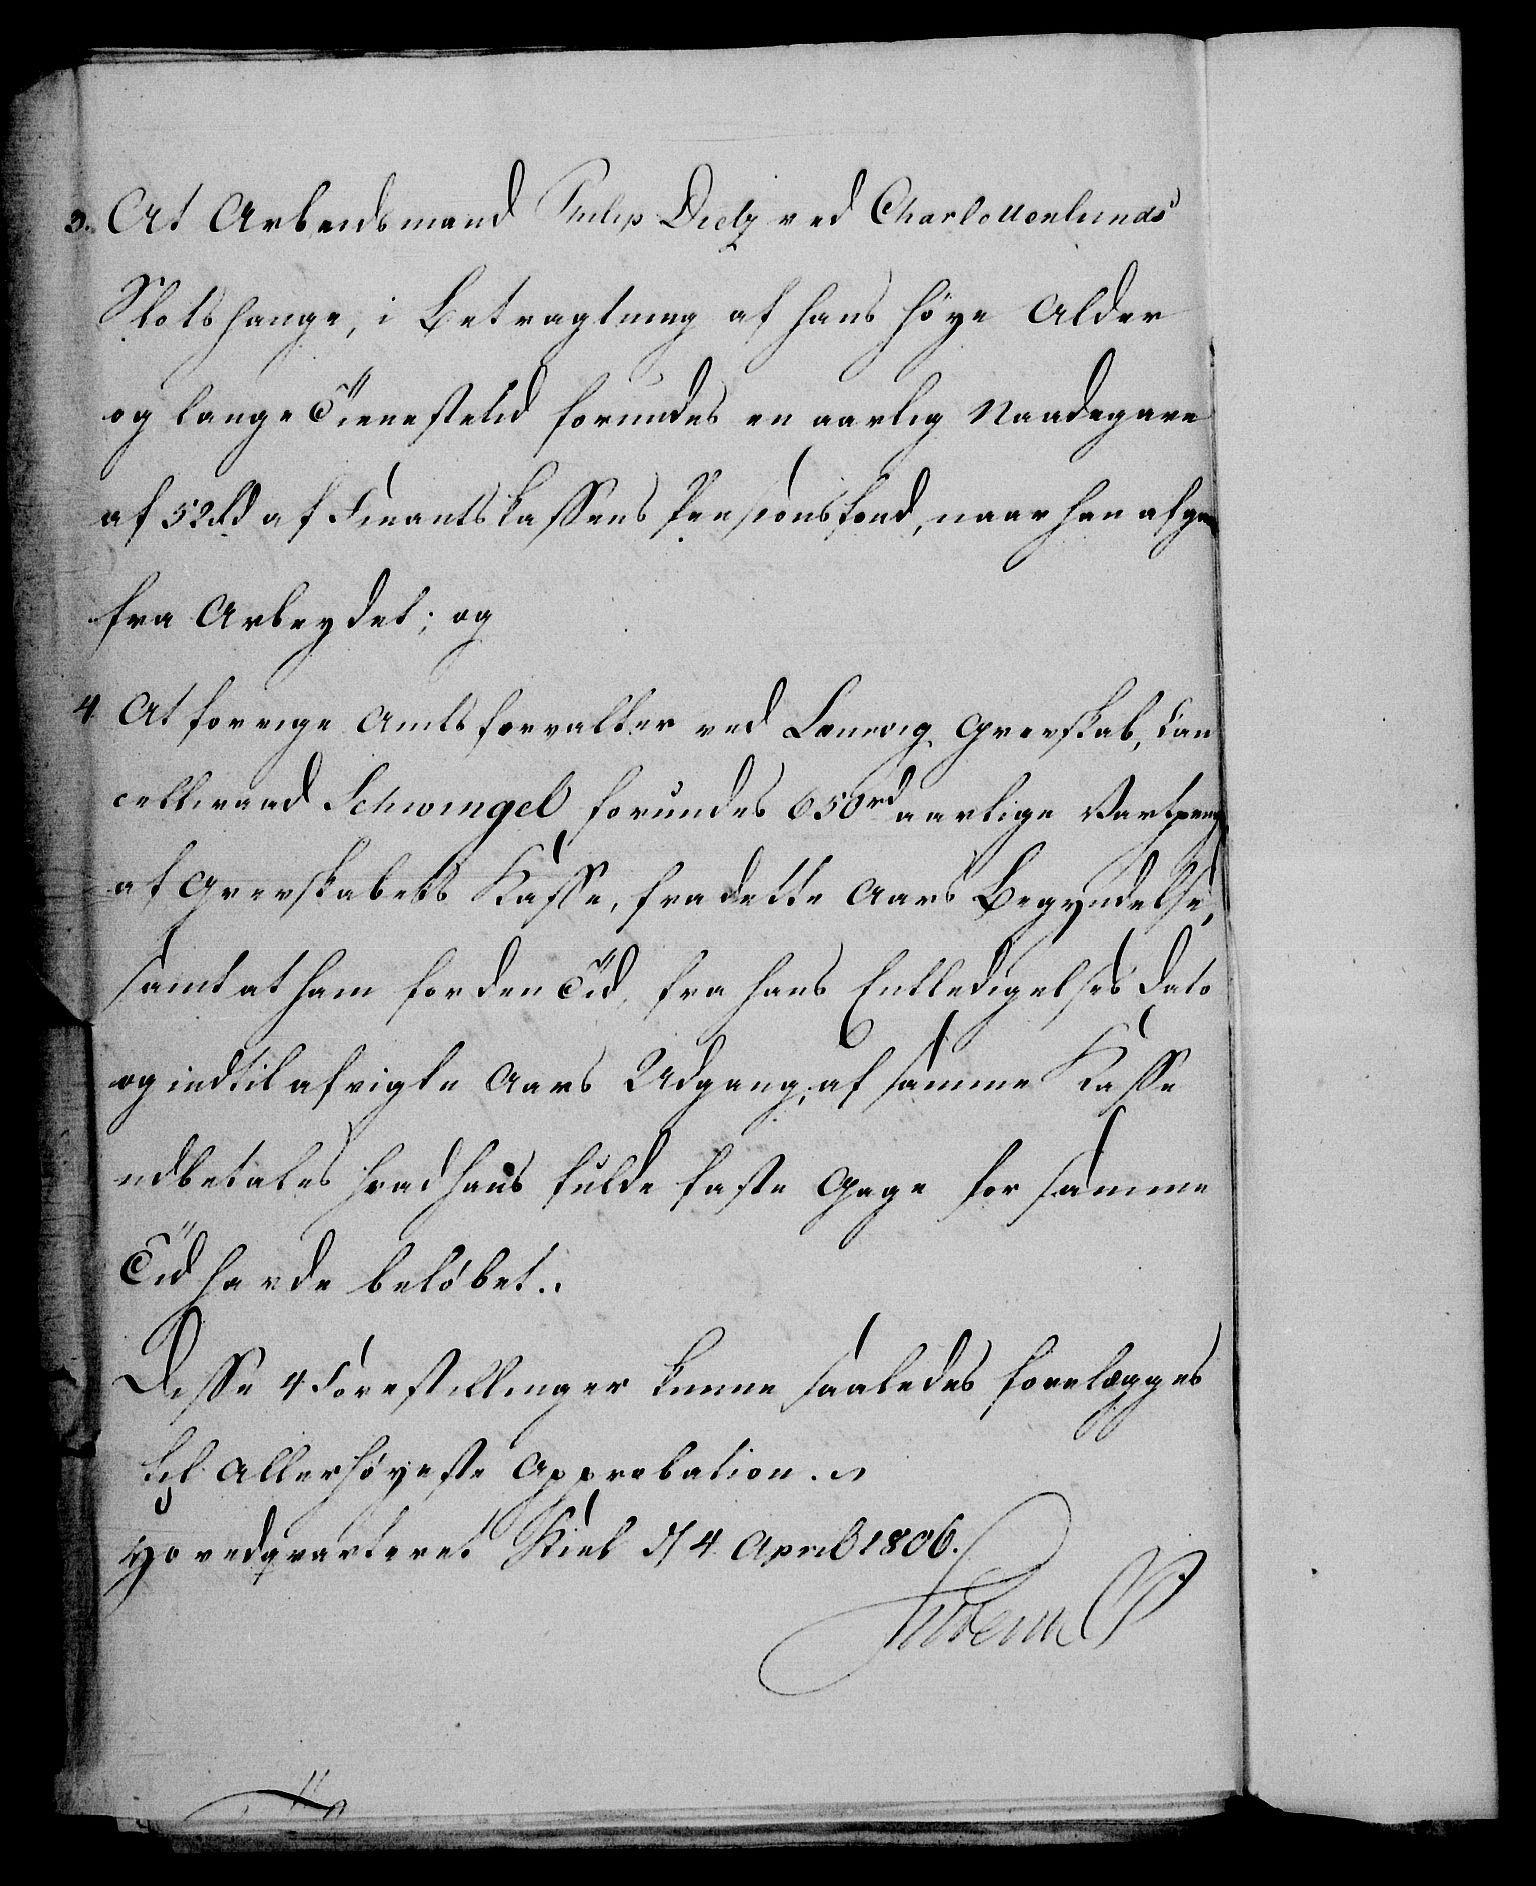 3. At Arbeidsmand Philip Dietz ved Charlottenlunds
Slotshauge, i Betragtning af hans høye Alder
og lange Tienestetid forundes en aarlig Naadegave
af 52 rd af Finantskassens Pensionsfond, naar han afgaaer
fra Arbeydet; og
4. At forrige Amtsforvalter ved Laurvig Grevskab, Can
celliraad Schwingel forundes 650 rd aarlige Vartpenge
af Grevskabets Kasse, fra dette Aars Begyndelse,
samt at ham for den Tid, fra hans Entledigelses Dato
og indtil afvigte Aars Udgang, af samme Kasse
udbetales hvad hans fulde faste Gage for samme
Tid havde beløbet.
Disse 4 Forestillinger kunne saaledes forelægges
til Allerhøyeste Approbation.
Hovedqvarteret Kiel d 4 April 1806.
Frederik P